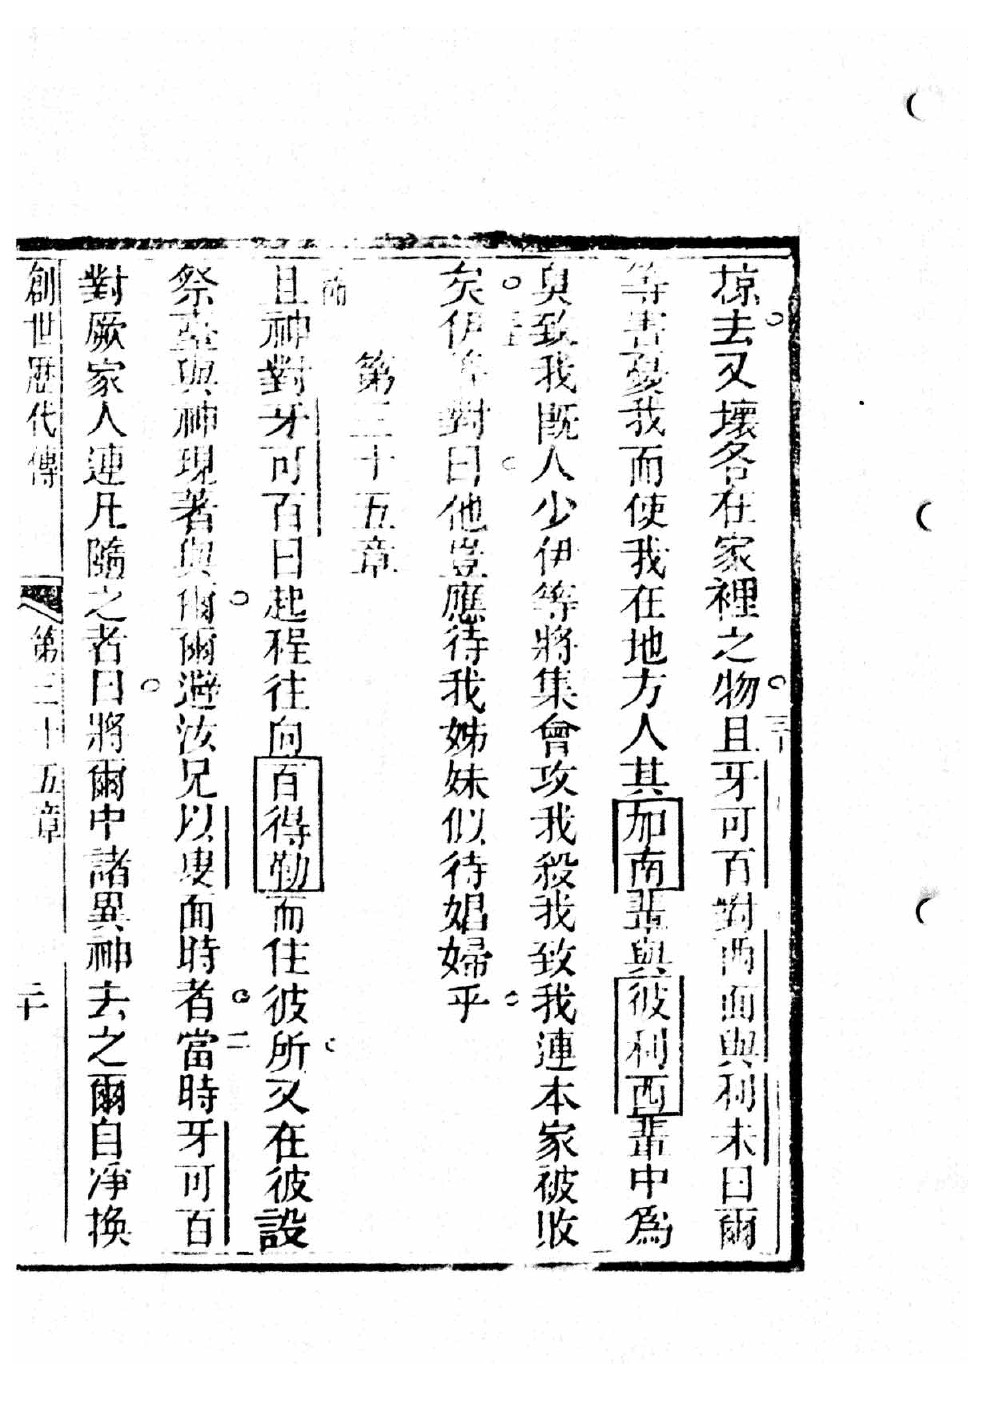 掠去又壞各在家裡之物且牙可百對西面與利未曰爾
等害憂我而使我在地方人其加南輩與彼利西輩中爲
臭致我旣人少伊等將集會攻我殺我致我連本家被敗
矣伊等對曰他豈應待我姊妹似待娼婦乎
第三十五章
且神對牙可百曰起程往向百得勒而住彼所又在彼設
祭臺與神現著與爾爾避汝兄以叟面時者當時牙可百
對厥家人連凡隨之者曰將爾中諸異神去之爾自淨換
創世歷代傳 第三十五章 二十